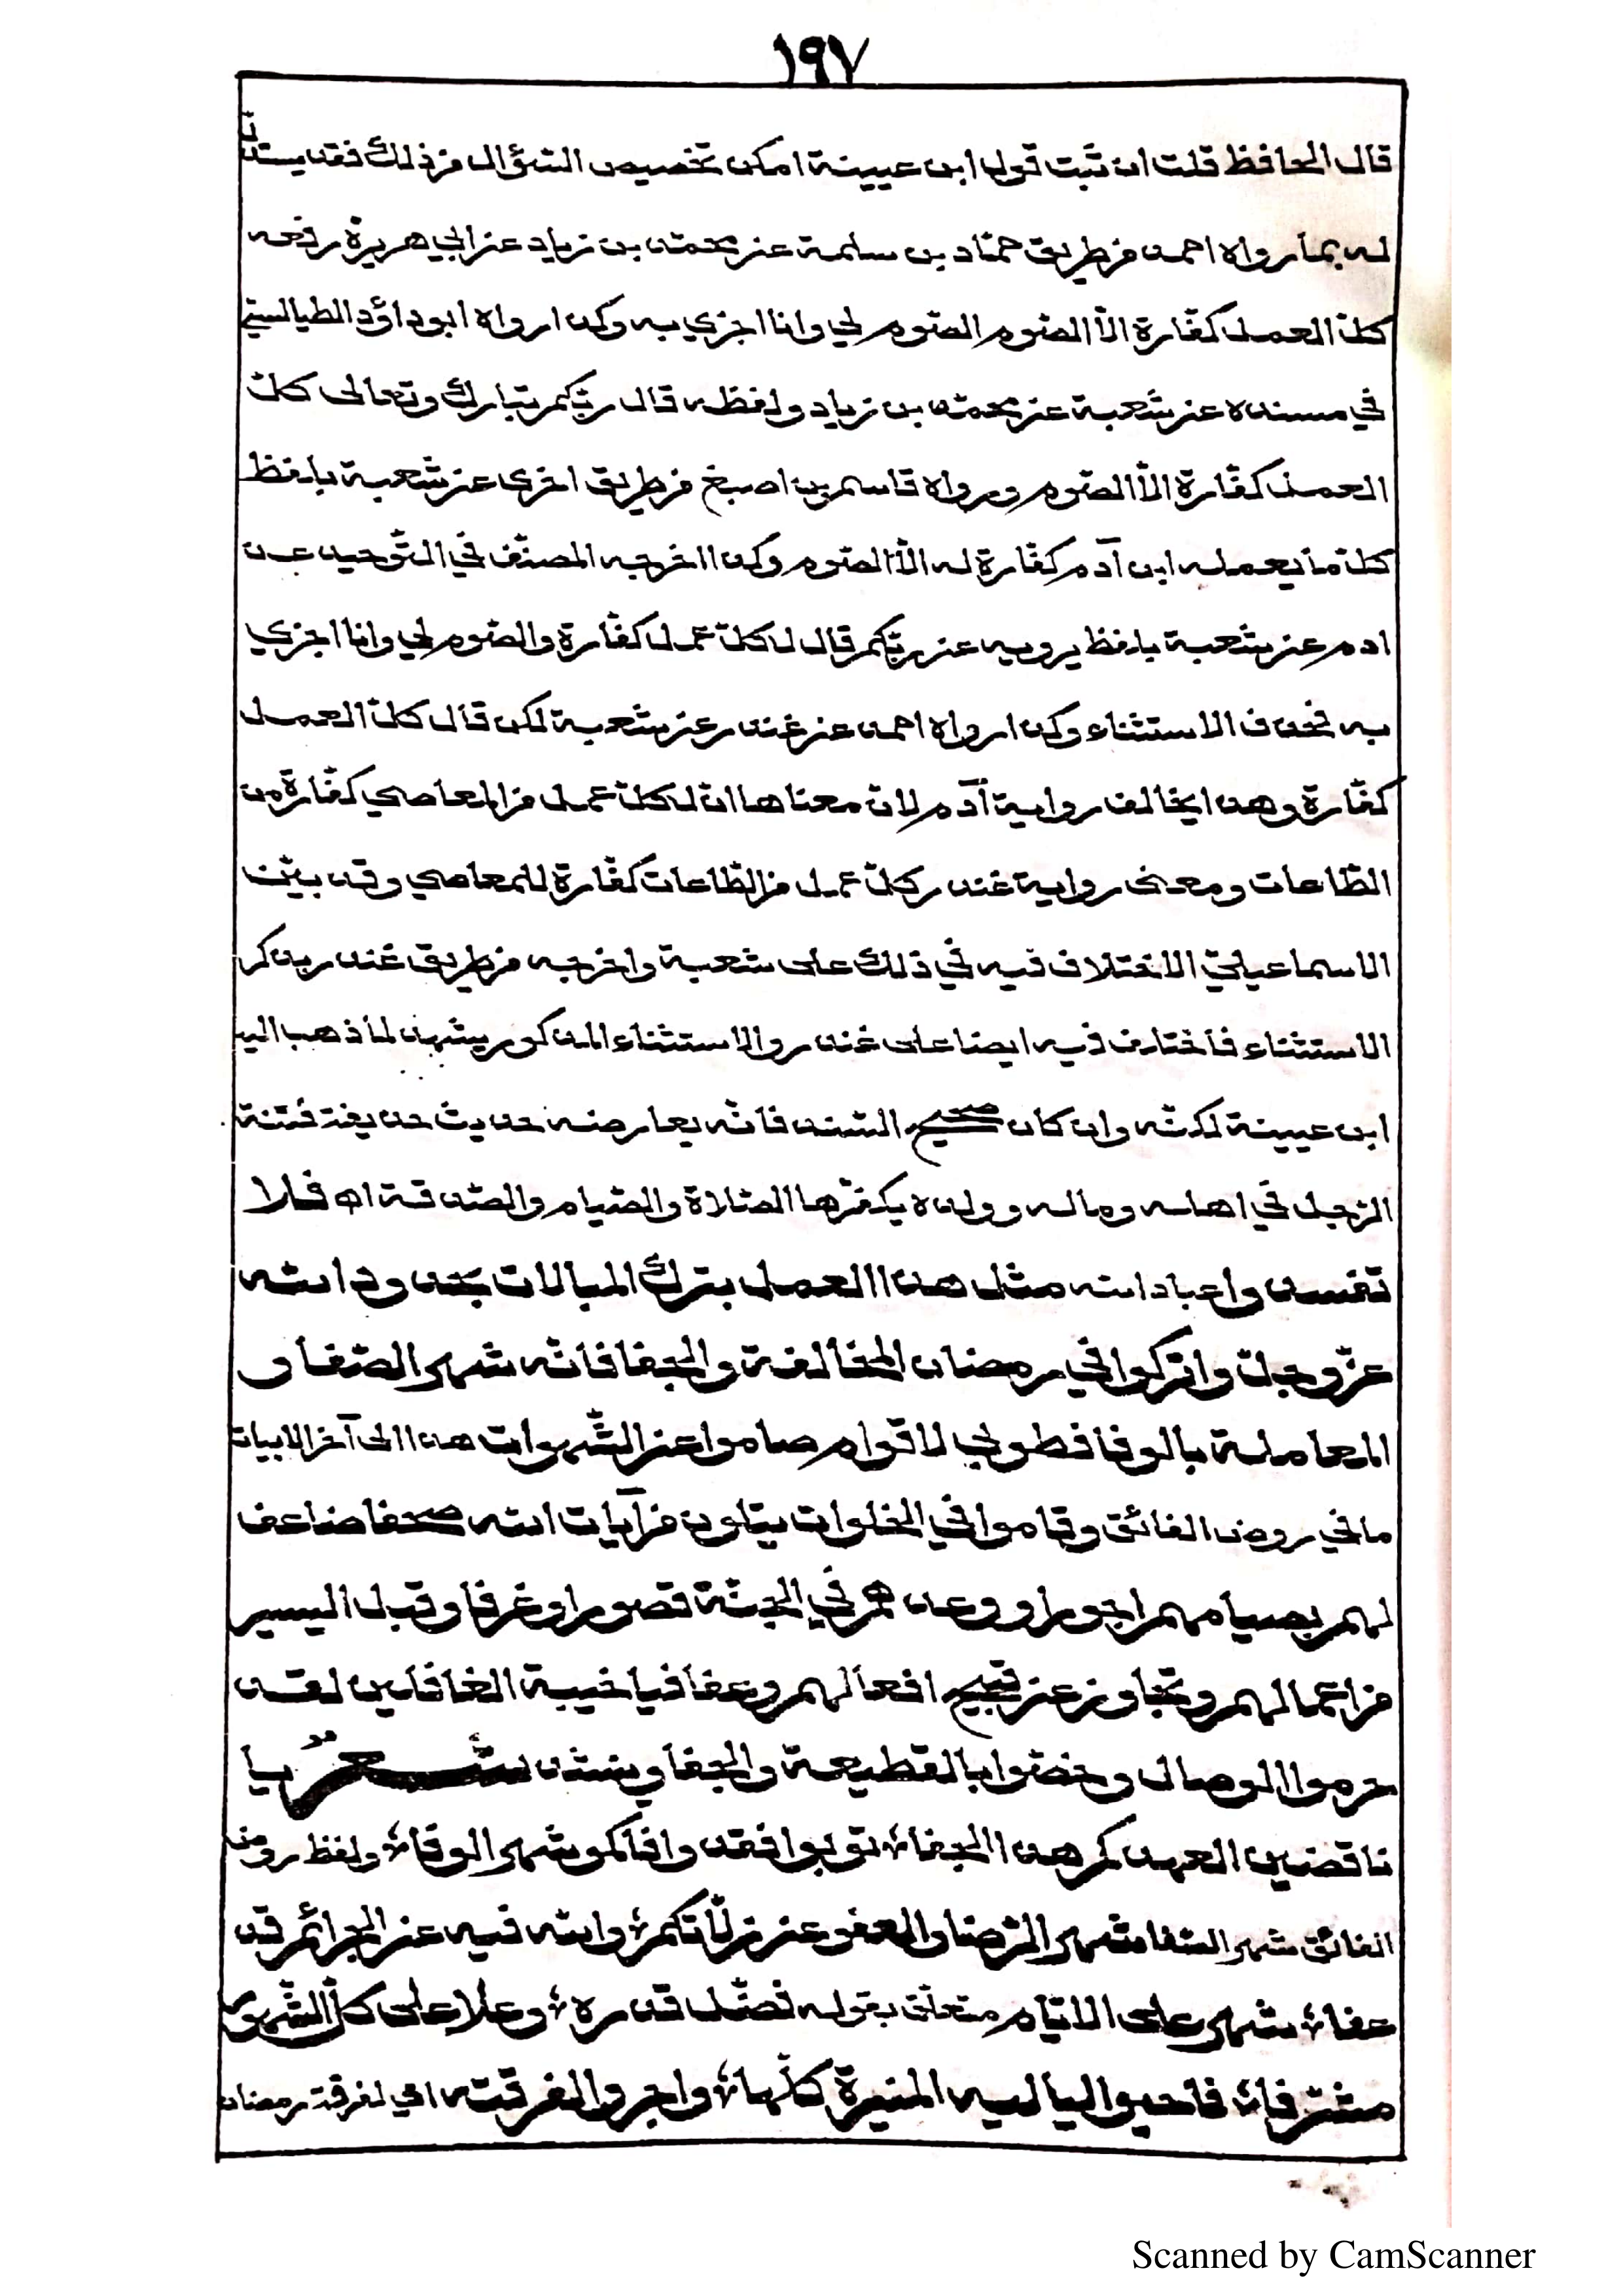 ١٩٧
قال الحافظ قلت ان ثبت قول ابن عيينة امكن تخصيص السّؤال من ذلك فقد يستدلّ
له بما رواه احمد من طريق حمّاد بن سلمة عن محمّد بن زياد عن ابي هريرة رفعه
كلّ العمل كفّارة الاّ الصّوم الصّوم لي وانا اجزي به وكذا رواه ابو داؤد الطيالسيّ
في مسنده عن شعبة عن محمّد بن زياد ولفظه قال ربّكم تبارك وتعالى كلّ
العمل كفّارة الاّ الصّوم ورواه قاسم بن اصبغ من طريق اخرى عن شعبة بلفظ
كلّ ما يعمله ابن آدم كفّارة له الاّ الصّوم وكذا اخرجه المصنّف في التّوحيد عن
ادم عن شعبة بلفظ يرويه عن ربّكم قال لكلّ عمل كفّارة والصّوم لي وانا اجزي
به فحذف الاستثناء وكذا رواه احمد عن غندر عن شعبة لكن قال كلّ العمل
كفّارة وهذا يخالف رواية آدم لان معناها انّ لكلّ عمل من المعاصي كفّارة من
الطّاعات ومعنى رواية غندر كلّ عمل من الطّاعات كفّارة للمعاصي وقد بيّن
الاسماعيليّ الاختلاف فيه في ذلك على شعبة واخرجه من طريق غندر بذكر
الاستثناء فاختلف فيه ايضا على غندر والاستثناء المذكور يشهد لما ذهب اليه
ابن عيينة لكنّه وان كان صحيح السّند فانّه يعارضه حديث حذيفة فتنة
الرّجل في اهله وماله وولده يكفّرها الصّلاة والصّيام والصّدقة اه فلا
تفسدوا عباد الله مثل هذا العمل بترك المبالات بحدود الله
عزّ وجلّ واتركوا في رمضان المخالفة والجفا فانّه شهر الصّفا و
المعاملة بالوفا فطوبى لاقوام صاموا عن الشّهوات هذا الى آخر الابيات
ما في روض الفائق وقاموا في الخلوات يتلون من آيات الله صحفا ضاعف
لهم بصيامهم اجورا ووعدهم في الجنّة قصورا وغرفا وقبل اليسير
من اعمالهم وتجاوز عن قبيح افعالهم وعفا فيا خيبة الغافلين لقد
حرموا الوصال وخصّوا بالقطيعة والجفا وينشد شعر يا
ناقضين العهد كم هذا الجفا توبوا فقد وافاكمو شهر الوفا ولفظ روض
الفائق شهر الصّفا شهر الرّضا والعفو عن زلاّتكم والله فيه عن الجرائم قد
عفا شهر على الايّام متعلّق بقوله فضّل قدره وعلا على كلّ الشّهور
مشرّفا فاحيوا لياليه المنيرة كلّها واجروا لفرقته اي لفرقة رمضان
Scanned by CamScanner